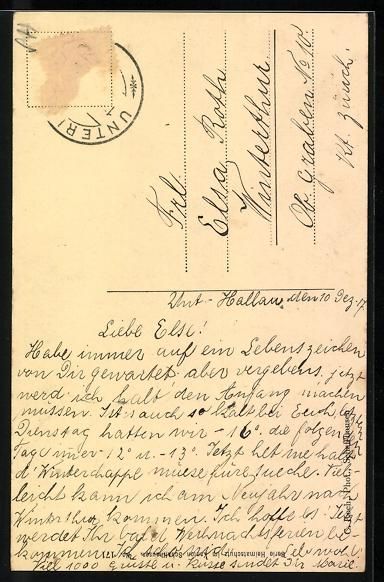 UNTER
Frl.
Elsa Roth
Winterthur
Ob. Graben No 10.
Kt. Zürich.
Unt-Hallau, den 10 Dez. 17.
Liebe Else!
Habe immer auf ein Lebenszeichen
von Dir gewartet aber vergebens, jetzt
werd ich halt den Anfang machen
müssen. Ist's auch so kalt bei Euch,
Dienstag hatten wir - 16°. die folgen
Tage immer - 12° u. - 13°. Jetzt het me halt
d' Winterchappe müese füre sueche. Viel
leicht kann ich am Neujahr nach
Winterthur kommen. Ich hoffe es! Jetzt
werdet Ihr bald Weihnachtsferien be-
kommen. leb wohl.
Viel 1000 Grüsse u. Küsse sendet Dir Marie.
Serie Heimatschutz